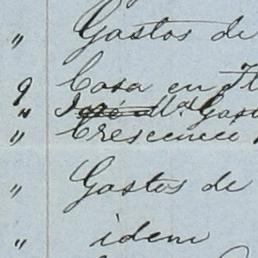 " Gastos de
9 Casa en
" José Mª Gast
" Crescencio
" Gastos de
" idem